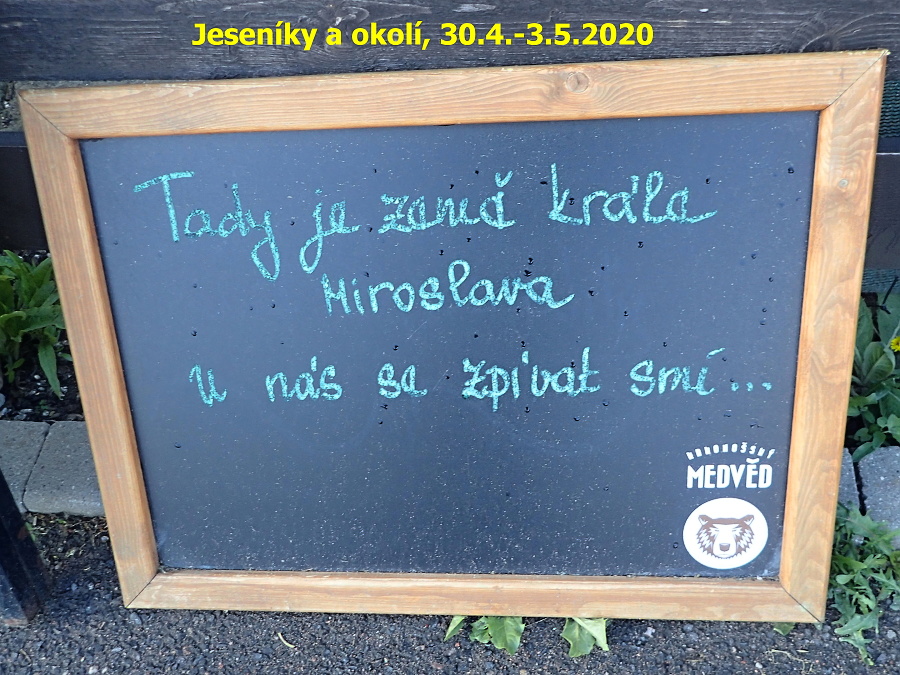 Jeseníky a okolí, 30.4.-3.5.2020
Tady je země krále
Miroslava
u nás se zpívat smí...
KRKONOŠSKÝ
MEDVĚD